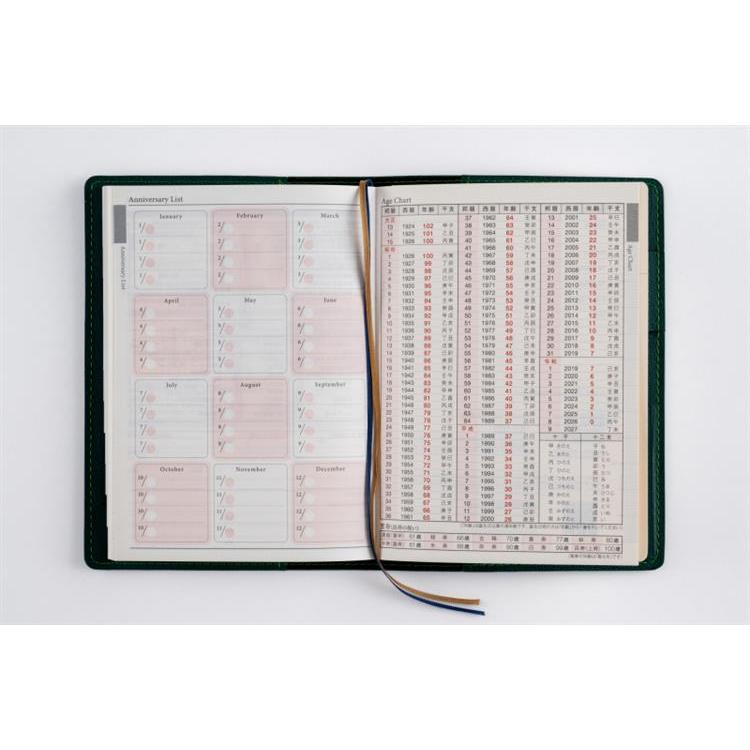 Anniversary List
Anniversary List
January
1/
1/
1/
1/
February
2/
2/
2/
2/
March
3/
3/
3/
3/
April
4/
4/
4/
4/
May
5/
5/
5/
5/
June
6/
6/
6/
6/
July
7/
7/
7/
7/
August
8/
8/
8/
8/
September
9/
9/
9/
9/
October
10/
10/
10/
10/
November
11/
11/
11/
11/
December
12/
12/
12/
12/
Age Chart
Age Chart
邦暦 西暦 年齢 干支
大正
13 1924 102 甲子
14 1925 101 乙丑
15 1926 100 丙寅
昭和
1 1926 100 丙寅
2 1927 99 丁卯
3 1928 98 戊辰
4 1929 97 己巳
5 1930 96 庚午
6 1931 95 辛未
7 1932 94 壬申
8 1933 93 癸酉
9 1934 92 甲戌
10 1935 91 乙亥
11 1936 90 丙子
12 1937 89 丁丑
13 1938 88 戊寅
14 1939 87 己卯
15 1940 86 庚辰
16 1941 85 辛巳
17 1942 84 壬午
18 1943 83 癸未
19 1944 82 甲申
20 1945 81 乙酉
21 1946 80 丙戌
22 1947 79 丁亥
23 1948 78 戊子
24 1949 77 己丑
25 1950 76 庚寅
26 1951 75 辛卯
27 1952 74 壬辰
28 1953 73 癸巳
29 1954 72 甲午
30 1955 71 乙未
31 1956 70 丙申
32 1957 69 丁酉
33 1958 68 戊戌
34 1959 67 己亥
35 1960 66 庚子
36 1961 65 辛丑
邦暦 西暦 年齢 干支
37 1962 64 壬寅
38 1963 63 癸卯
39 1964 62 甲辰
40 1965 61 乙巳
41 1966 60 丙午
42 1967 59 丁未
43 1968 58 戊申
44 1969 57 己酉
45 1970 56 庚戌
46 1971 55 辛亥
47 1972 54 壬子
48 1973 53 癸丑
49 1974 52 甲寅
50 1975 51 乙卯
51 1976 50 丙辰
52 1977 49 丁巳
53 1978 48 戊午
54 1979 47 己未
55 1980 46 庚申
56 1981 45 辛酉
57 1982 44 壬戌
58 1983 43 癸亥
59 1984 42 甲子
60 1985 41 乙丑
61 1986 40 丙寅
62 1987 39 丁卯
63 1988 38 戊辰
64 1989 37 己巳
平成
1 1989 37 己巳
2 1990 36 庚午
3 1991 35 辛未
4 1992 34 壬申
5 1993 33 癸酉
6 1994 32 甲戌
7 1995 31 乙亥
8 1996 30 丙子
9 1997 29 丁丑
10 1998 28 戊寅
11 1999 27 己卯
12 2000 26 庚辰
邦暦 西暦 年齢 干支
13 2001 25 辛巳
14 2002 24 壬午
15 2003 23 癸未
16 2004 22 甲申
17 2005 21 乙酉
18 2006 20 丙戌
19 2007 19 丁亥
20 2008 18 戊子
21 2009 17 己丑
22 2010 16 庚寅
23 2011 15 辛卯
24 2012 14 壬辰
25 2013 13 癸巳
26 2014 12 甲午
27 2015 11 乙未
28 2016 10 丙申
29 2017 9 丁酉
30 2018 8 戊戌
31 2019 7 己亥
令和
1 2019 7 己亥
2 2020 6 庚子
3 2021 5 辛丑
4 2022 4 壬寅
5 2023 3 癸卯
6 2024 2 甲辰
7 2025 1 乙巳
8 2026 0 丙午
9 2027 丁未
十干 十二支
甲 きのえ 子 ね
乙 きのと 丑 うし
丙 ひのえ 寅 とら
丁 ひのと 卯 う
戊 つちのえ 辰 たつ
己 つちのと 巳 み
庚 かのえ 午 うま
辛 かのと 未 ひつじ
壬 みずのえ 申 さる
癸 みずのと 酉 とり
戌 いぬ
亥 い
賀寿(長寿の祝い)
還暦(華甲) 61歳 緑寿 66歳 古稀 70歳 喜寿 77歳 傘寿 80歳
半寿 81歳 米寿 88歳 卒寿 90歳 白寿 99歳 百寿(上寿) 100歳